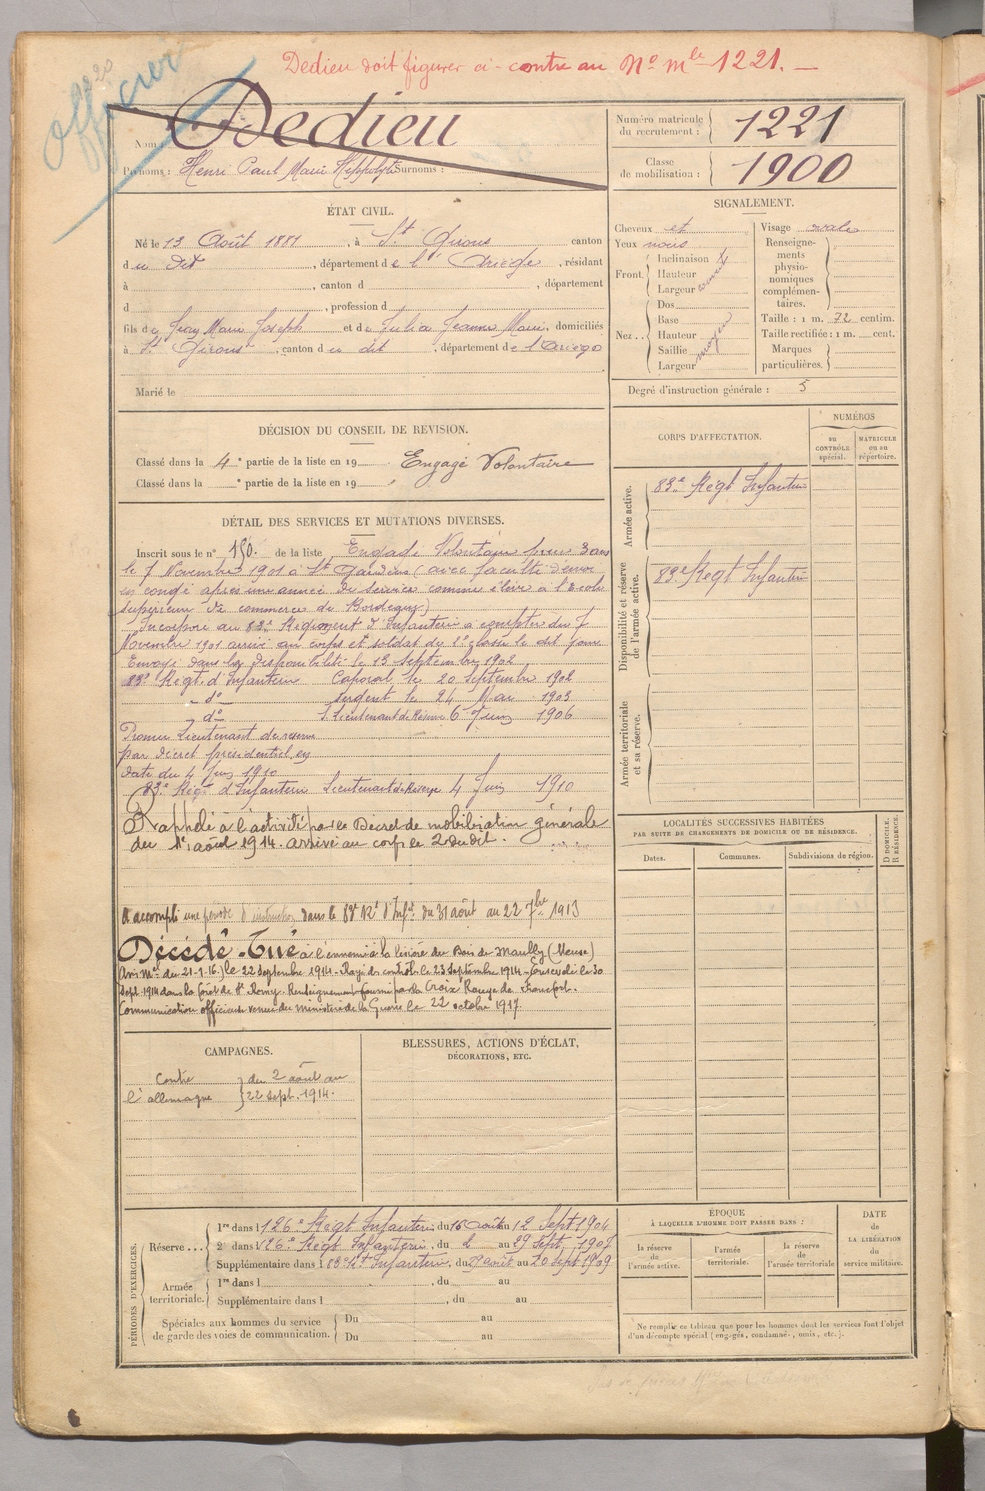 Dedieu doit figurer ci-contre au No mle 1221.
officier
Nom : Dedieu
Prénoms : Henri Paul Marie Hippolyte Surnoms :
Numéro matricule du recrutement : 1221
Classe de mobilisation : 1900
ÉTAT CIVIL.
Né le 13 Août 1881, à St Girons canton
du dit, département de l'Ariège, résidant
à , canton d , département
d , profession d
fils de Jean Marie Joseph et de Julia Jeanne Marie, domiciliés
à St Girons, canton du dit, département de l'Ariège
Marié le
SIGNALEMENT.
Cheveux et
Yeux noirs
Front. Inclinaison
Hauteur
Largeur
Nez.. Dos
Base
Hauteur
Saillie
Largeur
moyen
Visage ovale
Renseignements physionomiques complémentaires.
Taille : 1 m. 72 centim.
Taille rectifiée : 1 m. cent.
Marques particulières.
Degré d'instruction générale : 5
DÉCISION DU CONSEIL DE REVISION.
Classé dans la 4e partie de la liste en 19 Engagé Volontaire
Classé dans la e partie de la liste en 19
CORPS D'AFFECTATION.
NUMÉROS
au CONTRÔLE spécial.
MATRICULE ou au répertoire.
Armée active.
83e Régt Infanterie
Disponibilité et réserve de l'armée active.
83e Régt Infanterie
Armée territoriale et sa réserve.
DÉTAIL DES SERVICES ET MUTATIONS DIVERSES.
Inscrit sous le n° 150. de la liste Engagé Volontaire pour 3 ans
le 7 Novembre 1901 à St Gaudens (avec faculté d'envoi
en congé après une année de service comme élève à l'Ecole
supérieure de commerce de Bordeaux)
Incorporé au 83e Régiment d'Infanterie à compter du 7
Novembre 1901 arrivé au corps et soldat de 2e classe le dit jour
Envoyé dans la disponibilité le 13 Septembre 1902
83e Régt d'Infanterie Caporal le 20 Septembre 1902
-do- Sergent le 24 Mai 1903
-do- S. Lieutenant de Réserve 6 Juin 1906
Promu Lieutenant de réserve
par décret présidentiel en
date du 4 Juin 1910
83e Régt d'Infanterie Lieutenant de Réserve 4 Juin 1910
Rappelé à l'activité par le Décret de mobilisation générale
du 1er août 1914. arrivé au corps le 2 du dit.
A accompli une période d'instruction dans le 83e Rt d'Infie du 31 août au 22 7bre 1913
Décédé - Tué à l'ennemi à la lisière du Bois de Maully (Meuse)
(Avis Mel du 21-1-16.) le 22 septembre 1914 - Rayé des contrôles le 23 septembre 1914 - le 30
Sept. 1914 dans la forêt de St Remy. Renseignement fourni par la Croix Rouge de Francfort.
Communication officieuse venue du ministère de la Guerre le 22 octobre 1917.
LOCALITÉS SUCCESSIVES HABITÉES
PAR SUITE DE CHANGEMENTS DE DOMICILE OU DE RÉSIDENCE.
Dates.
Communes.
Subdivisions de région.
D DOMICILE. R RÉSIDENCE.
CAMPAGNES.
Contre l'allemagne du 2 août au 22 sept. 1914.
BLESSURES, ACTIONS D'ÉCLAT,
DÉCORATIONS, ETC.
PÉRIODES D'EXERCICES.
Réserve...
1re dans l 126e Régt Infanterie du 16 août au 12 Sept 1904
2e dans 126e Régt Infanterie, du 2 au 29 Sept. 1907
Supplémentaire dans l 83e Rt Infanterie, du août au 20 Sept 1909
Armée territoriale.
1re dans l , du au
Supplémentaire dans l , du au
Spéciales aux hommes du service de garde des voies de communication.
Du au
Du au
ÉPOQUE
À LAQUELLE L'HOMME DOIT PASSER DANS :
la réserve de l'armée active.
l'armée territoriale.
la réserve de l'armée territoriale
DATE de LA LIBÉRATION du service militaire.
Ne remplir ce tableau que pour les hommes dont les services font l'objet
d'un décompte spécial (engagés, condamnés, omis, etc.).